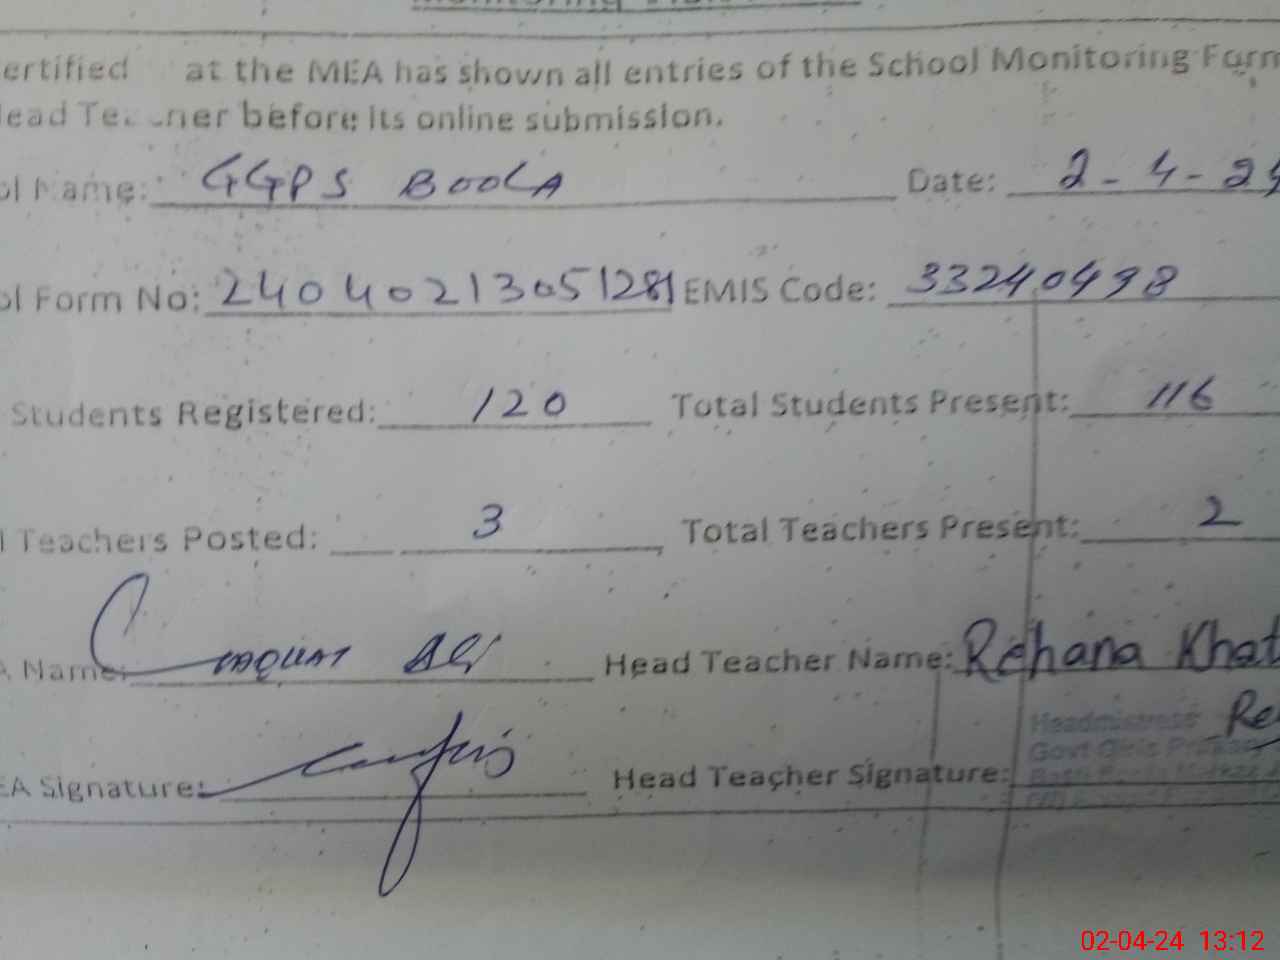 ertified at the MEA has shown all entries of the School Monitoring Form
Head Teacher before its online submission.
ol Name: GGPS BOOLA Date: 2-4-24
ol Form No: 24040213051281 EMIS Code: 33240498
Students Registered: 120 Total Students Present: 116
l Teachers Posted: 3 Total Teachers Present: 2
A Name: LIAQUAT ALI Head Teacher Name: Rehana Khat
EA Signature: Head Teacher Signature: Re
Headmistress
Govt Girls Primary
02-04-24 13:12